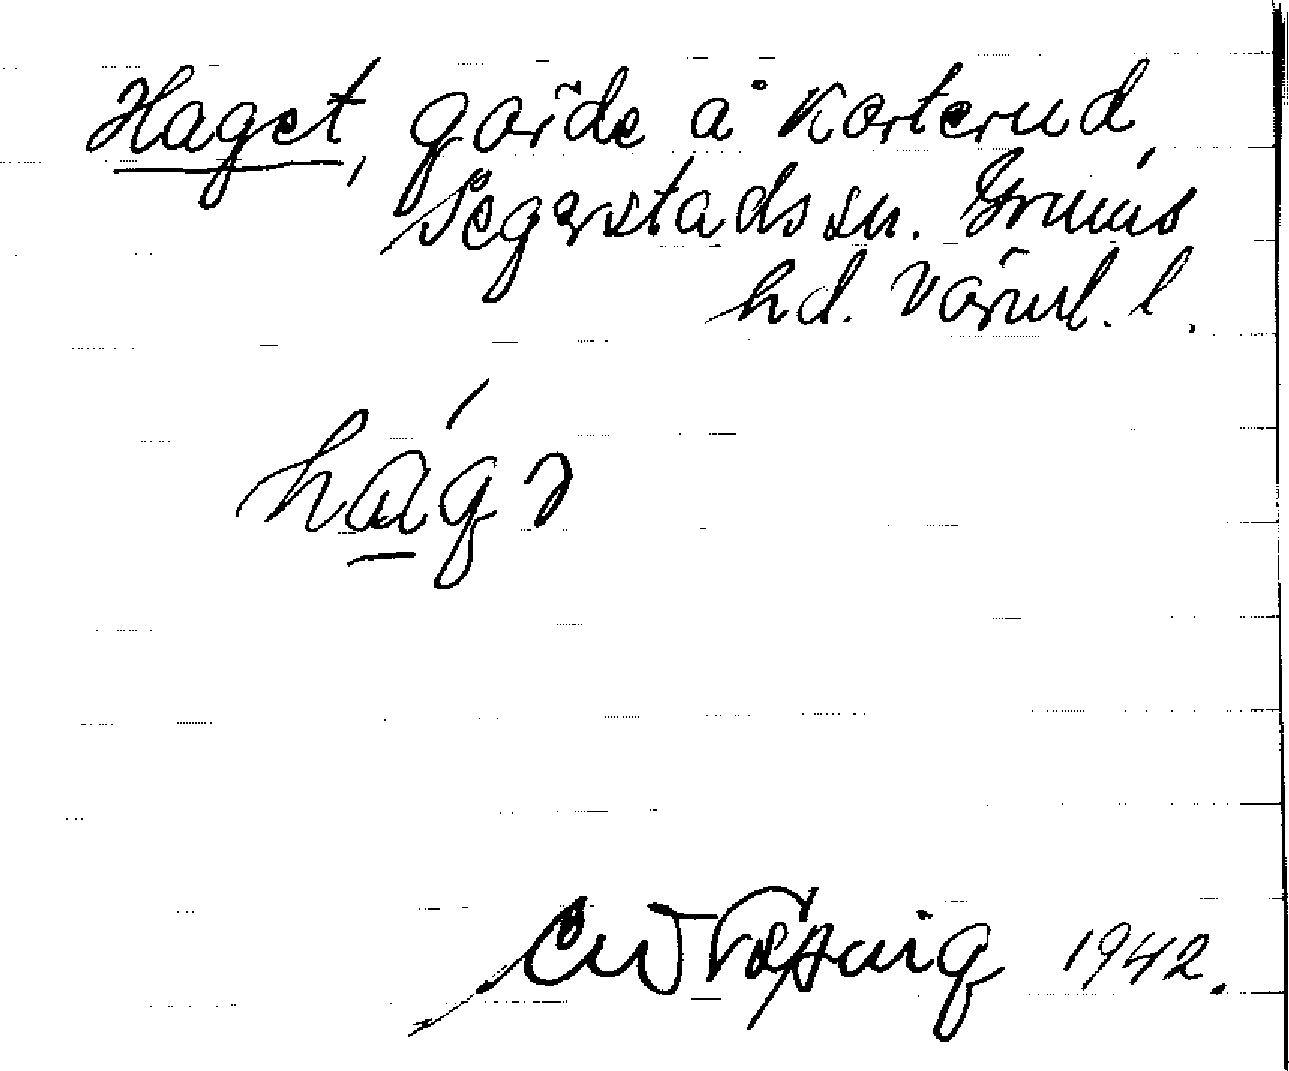 Haget, gärde å Korterud,
Segerstads sn. Grums
hd. Värml. l.
hágɘ
1942.